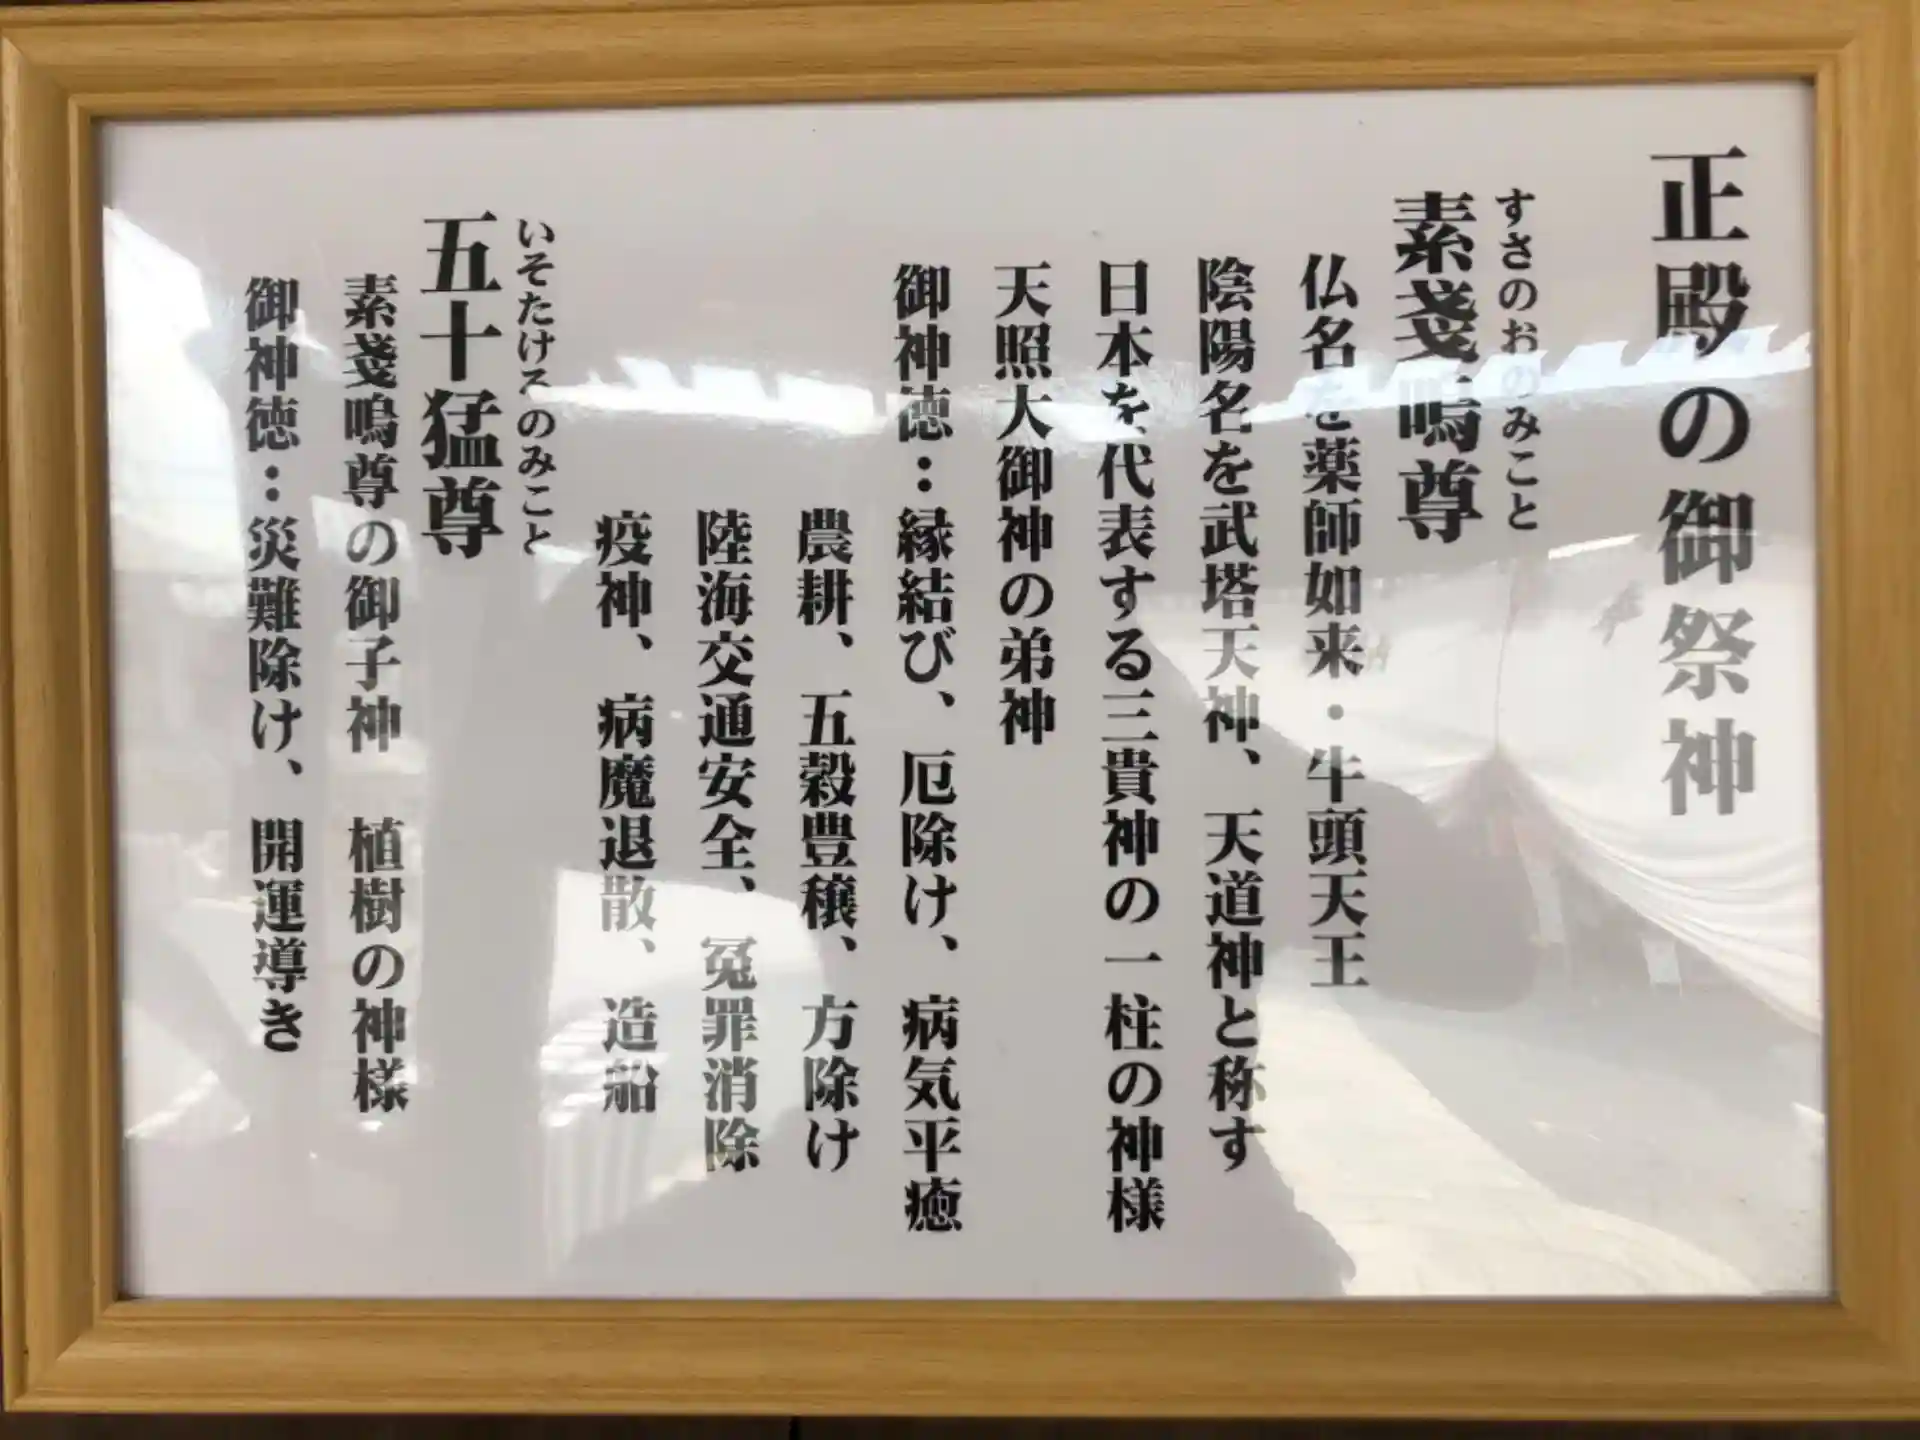 正殿の御祭神
すさのおのみこと
素戔嗚尊
仏名を薬師如来・牛頭天王
陰陽名を武塔天神、天道神と称す
日本を代表する三貴神の一柱の神様
天照大御神の弟神
御神徳:縁結び、厄除け、病気平癒
農耕、五穀豊穣、方除け
陸海交通安全、冤罪消除
疫神、病魔退散、造船
いそたけるのみこと
五十猛尊
素戔嗚尊の御子神 植樹の神様
御神徳:災難除け、開運導き